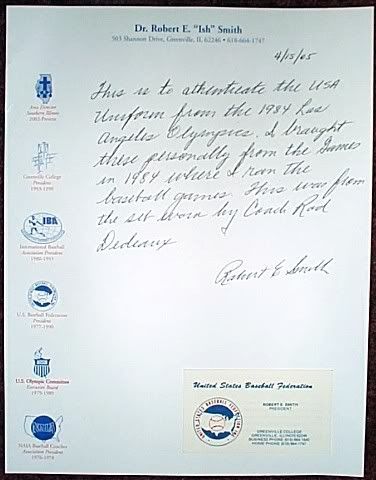 Dr. Robert E. "Ish" Smith
503 Shannon Drive, Greenville, IL 62246 • 618-664-1747
4/15/05
This is to authenticate the USA
Uniform from the 1984 Los
Angeles Olympics. I braught
these personally from the Games
in 1984 where I ran the
baseball games. This was from
the set worn by Coach Rod
Dedeaux
Robert E Smith
Area Director
Southern Illinois
2003-Present
Greenville College
President
IBA
International Baseball
Association President
U.S. Baseball Federation
President
1977-1990
U.S. Olympic Committee
Executive Board
NAIA Baseball Coaches
Association President
United States Baseball Federation
ROBERT E. SMITH
PRESIDENT
GREENVILLE COLLEGE
GREENVILLE, ILLINOIS 62246
BUSINESS PHONE
HOME PHONE (618) 664-1747